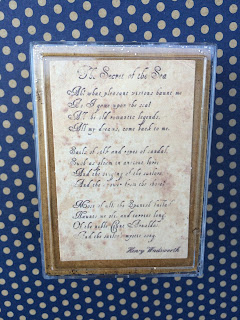 The Secret of the Sea
Ah! what pleasant visions haunt me
As I gaze upon the sea!
All the old romantic legends,
All my dreams, come back to me.
Sails of silk and ropes of sandal,
Such as gleam in ancient lore;
And the singing of the sailors,
And the answer from the shore!
Most of all, the Spanish ballad
Haunts me oft, and tarries long,
Of the noble Count Arnaldos
And the sailor's mystic song.
Henry Wadsworth